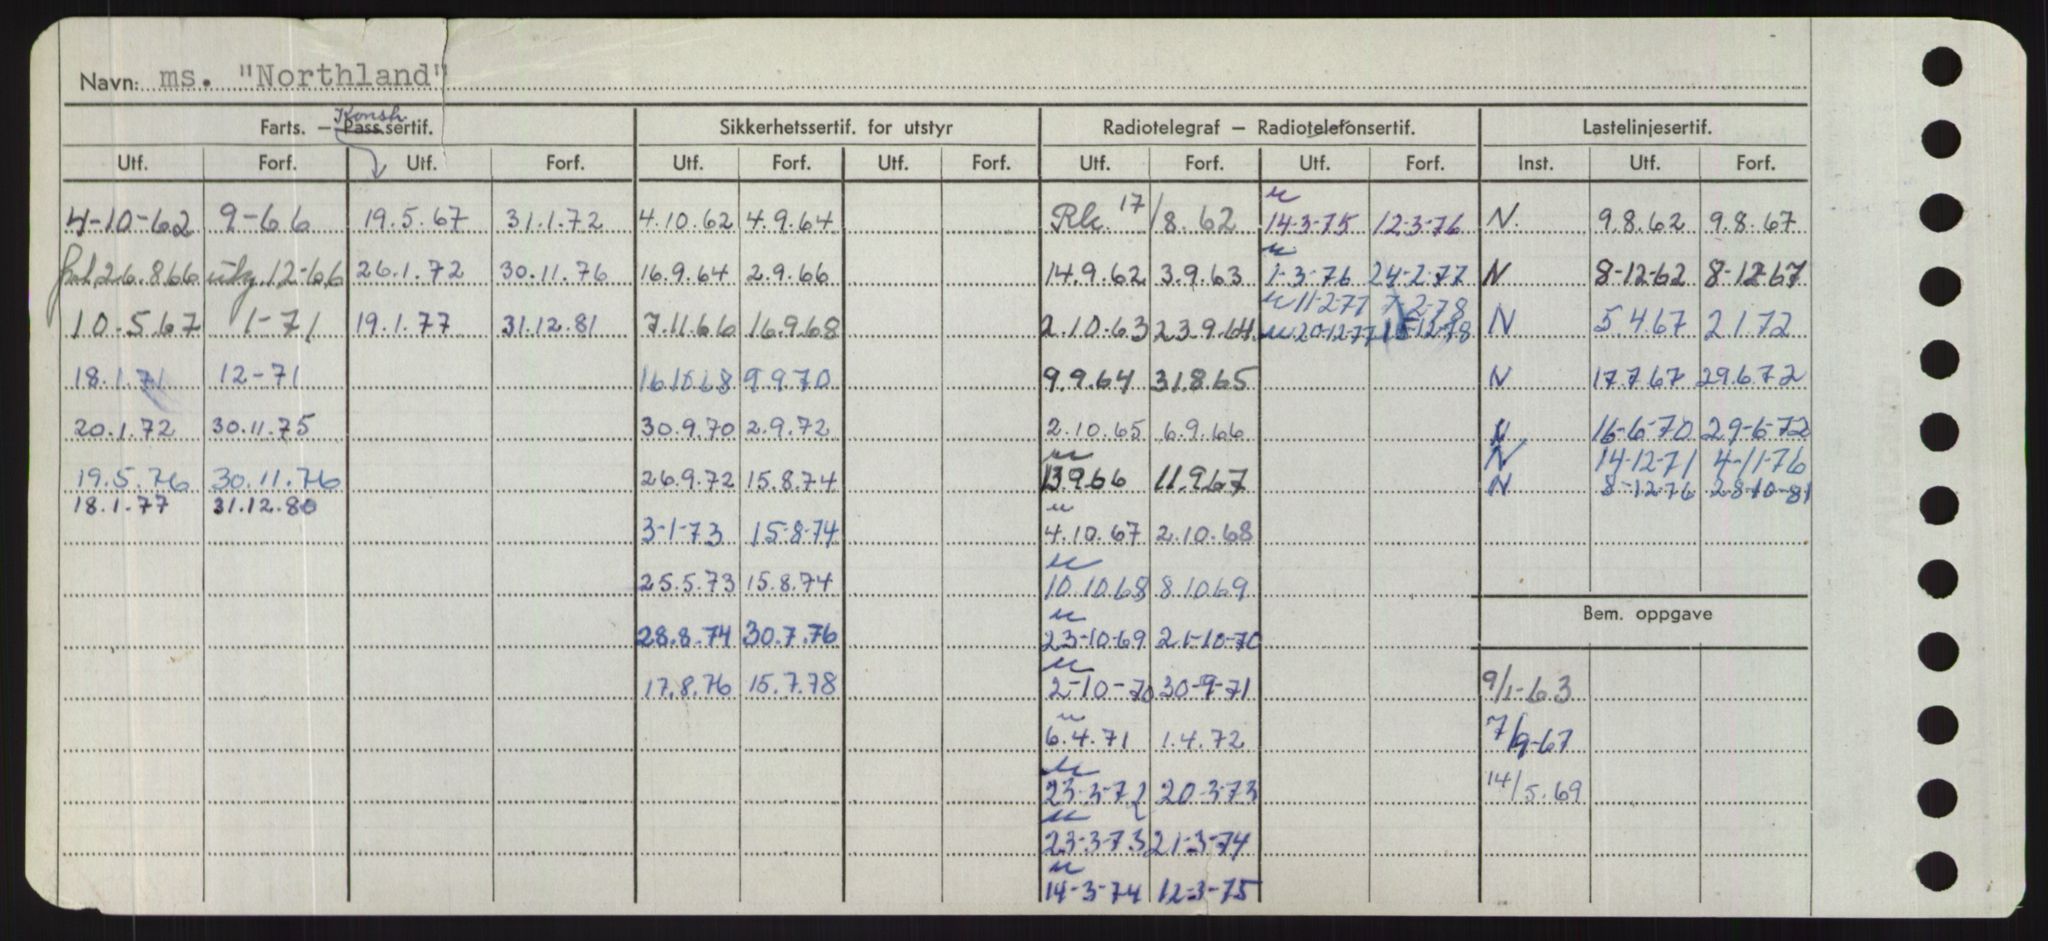 Navn: ms. "Northland"
Konsh
Farts. — Pass.sertif. Sikkerhetssertif. for utstyr Radiotelegraf — Radiotelefonsertif. Lastelinjesertif.
Utf. Forf. Utf. Forf. Utf. Forf. Utf. Forf. Utf. Forf. Utf. Forf. Inst. Utf. Forf.
4-10-62 9-66 19.5.67 31.1.72 4.10.62 4.9.64 17/8.62 14-3-75 12-3-76 N. 9.8.62 9.8.67
26.8.66 12-66 26.1.72 30.11.76 16.9.64 2.9.66 14.9.62 3.9.63 1-3-76 24-2-77 N 8-12-62 8-12-67
11-2-77 7-2-78
10.5.67 1-71 19.1.77 31.12.81 7.11.66 16.9.68 2.10.63 23.9.64 20-12-77 12-78 N 5.4.67 2.1.72
18.1.71 12-71 16.10.68 9.9.70 9.9.64 31.8.65 N 17.7.67 29.6.72
20.1.72 30.11.75 30.9.70 2.9.72 2.10.65 6.9.66 N 16-6-70 29-6-72
N 14-12-71 4-11-76
19.5.76 30.11.76 26.9.72 15.8.74 13.9.66 11.9.67 N 8-12-76 28-10-81
18.1.77 31.12.80
3-1-73 15-8-74 4.10.67 2.10.68
25.5.73 15.8.74 10.10.68 8.10.69
Bem. oppgave
28.8.74 30.7.76 23-10-69 21-10-70
17.8.76 15.7.78 2-10-70 30-9-71 9/1-63
6.4.71 1.4.72 7/9-67
23-3-72 20-3-73 14/5.69
23-3-73 21-3-74
14-3-74 12-3-75